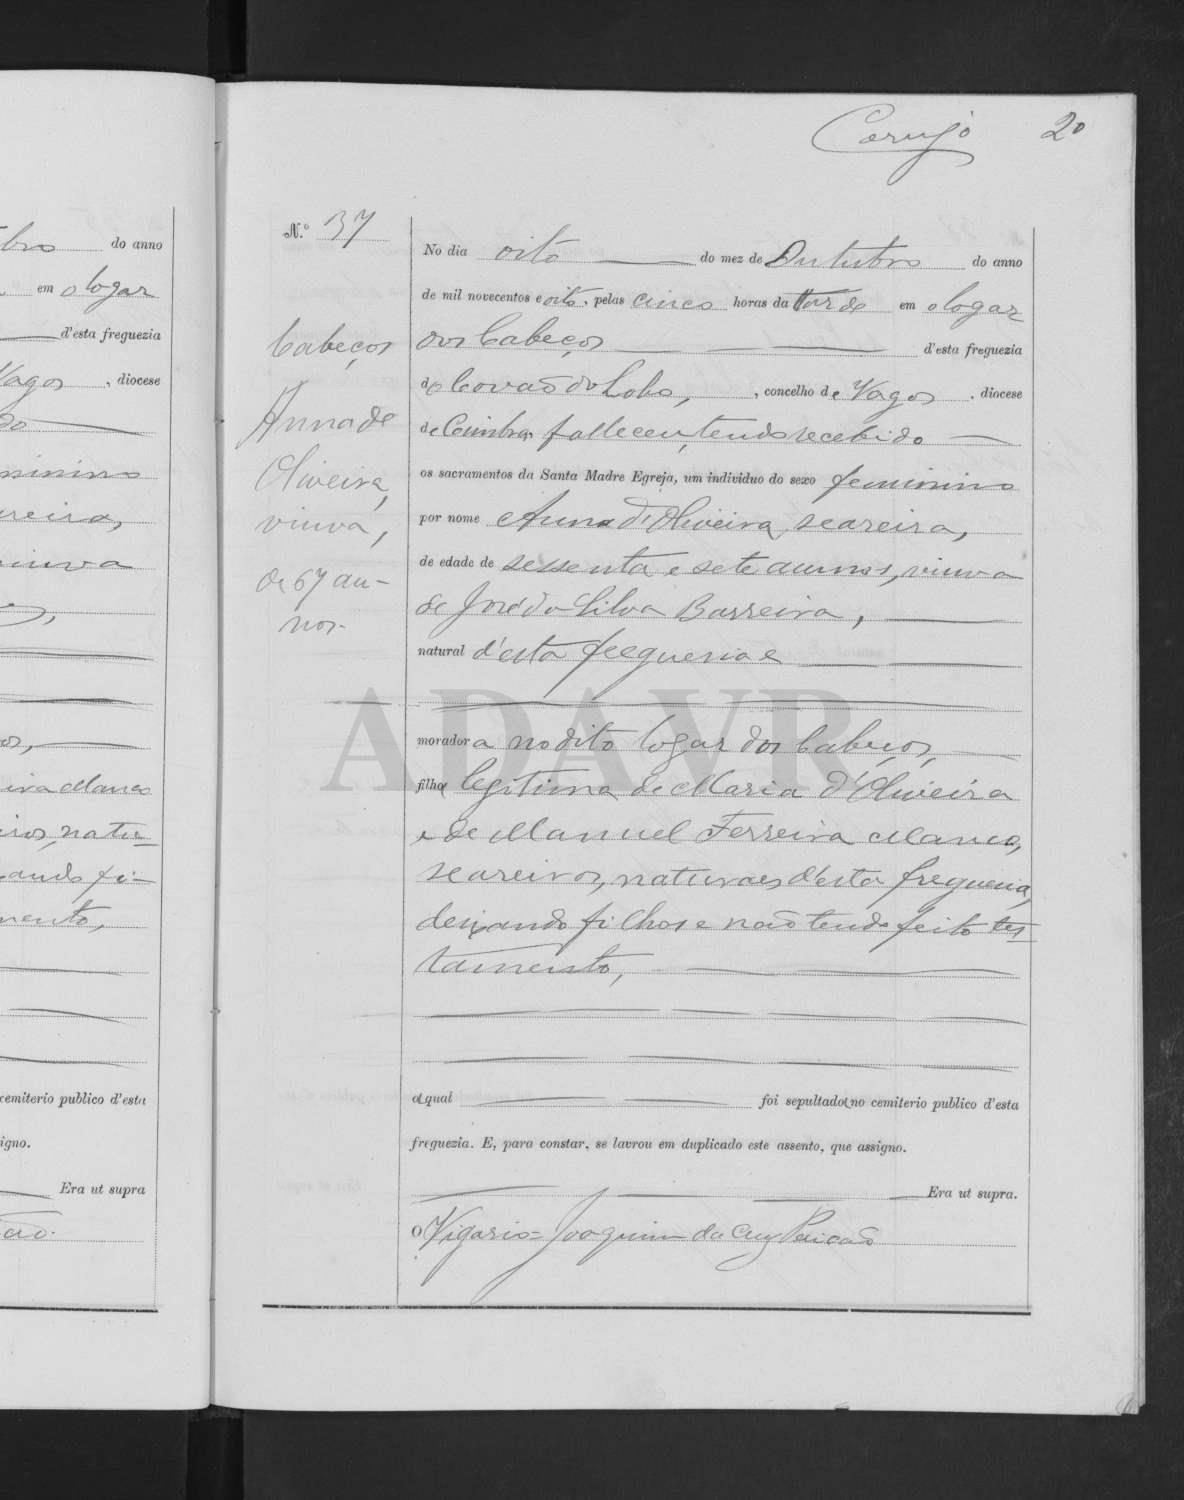 Corujo 20
bro do anno
em o logar
d'esta freguezia
Vagos, diocese
do
minino
reira,
viuva
os,
eira Manco
iros, natu-
ando fi-
mento,
cemiterio publico d'esta
igno.
Era ut supra
N.º 37
Cabeços
Anna de
Oliveira,
viuva,
de 67 an-
nos.
No dia oito do mez de Outubro do anno
de mil novecentos e oito, pelas cinco horas da tarde em o logar
dos Cabeços d'esta freguezia
do Covão do Lobo, concelho de Vagos, diocese
de Coimbra, falleceu, tendo recebido
os sacramentos da Santa Madre Egreja, um individuo do sexo feminino
por nome Anna d'Oliveira, seareira,
de edade de sessenta e sete annos, viuva
de José da Silva Barreira,
natural d'esta freguesia e
ADAVR
moradora no dito logar dos Cabeços,
filha legitima de Maria d'Oliveira
e de Manuel Ferreira Manco,
seareiros, naturaes d'esta freguesia,
deixando filhos e não tendo feito tes-
tamento,
a qual foi sepultada no cemiterio publico d'esta
freguezia. E, para constar, se lavrou em duplicado este assento, que assigno.
Era ut supra.
O Vigario = Joaquim da Cruz